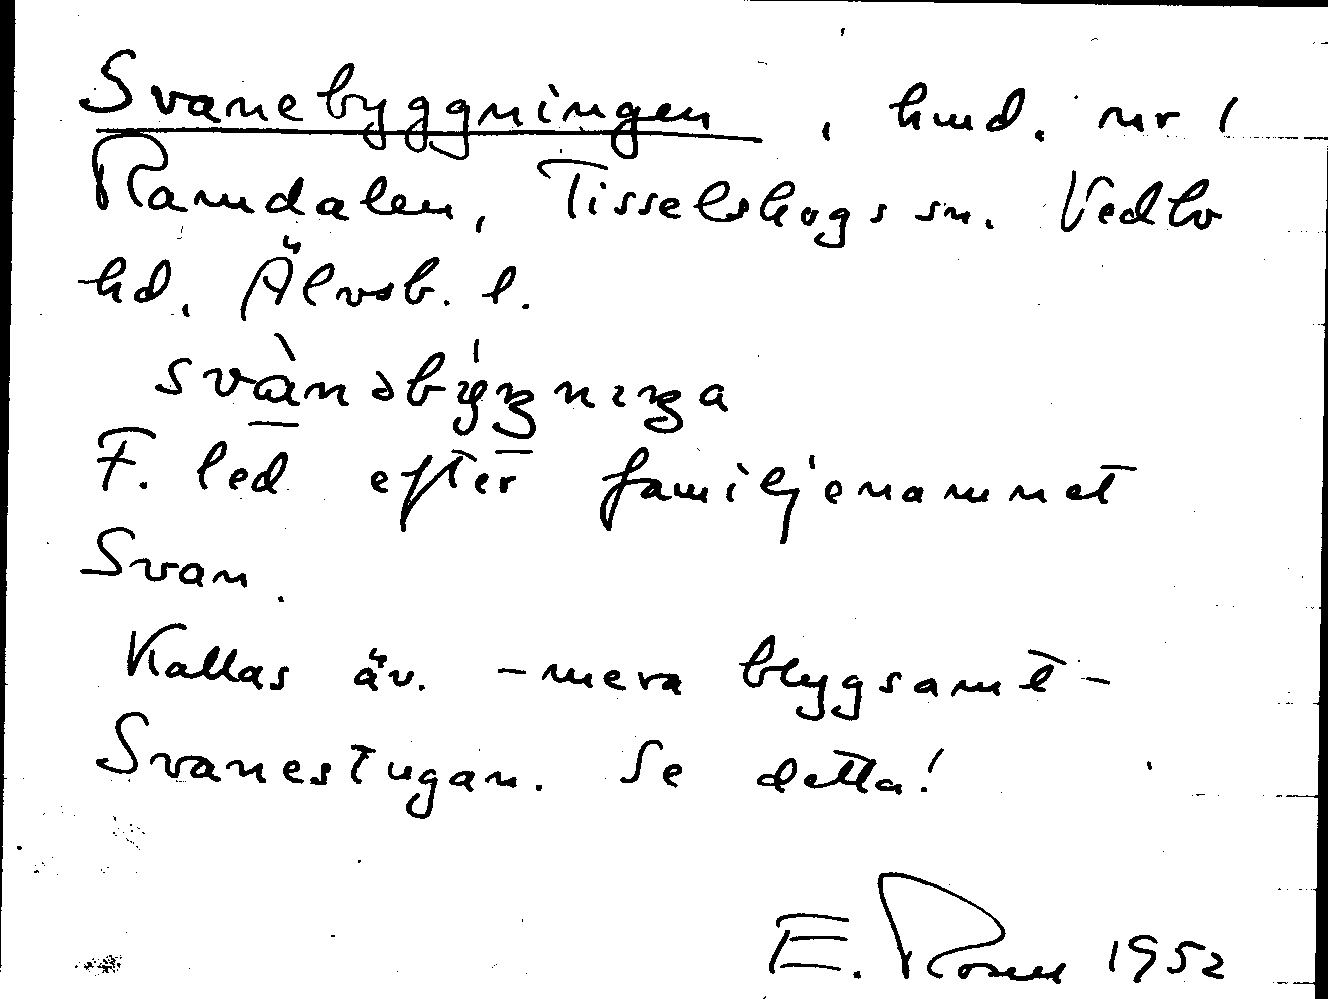 Svanebyggningen, hmd. nr 1
Ramdalen, Tisselskogs sn. Vedbo
hd. Älvsb. l.
svànəby̍gnıŋa
F. led efter familjenamnet
Svan.
Kallas äv. – mera blygsamt –
Svanestugan. Se detta!
E. Rosell 1952